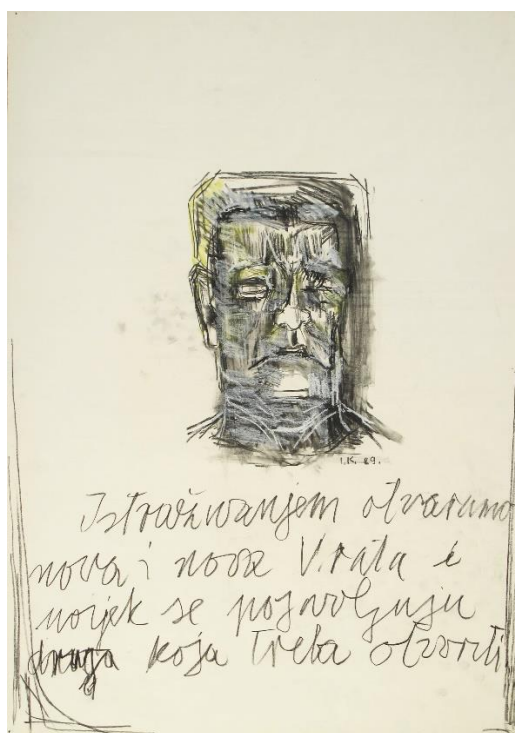 I.K. 89.
Istraživanjem otvaramo
nova i nova Vrata i
uvijek se pojavljuju
druga koja treba otvoriti